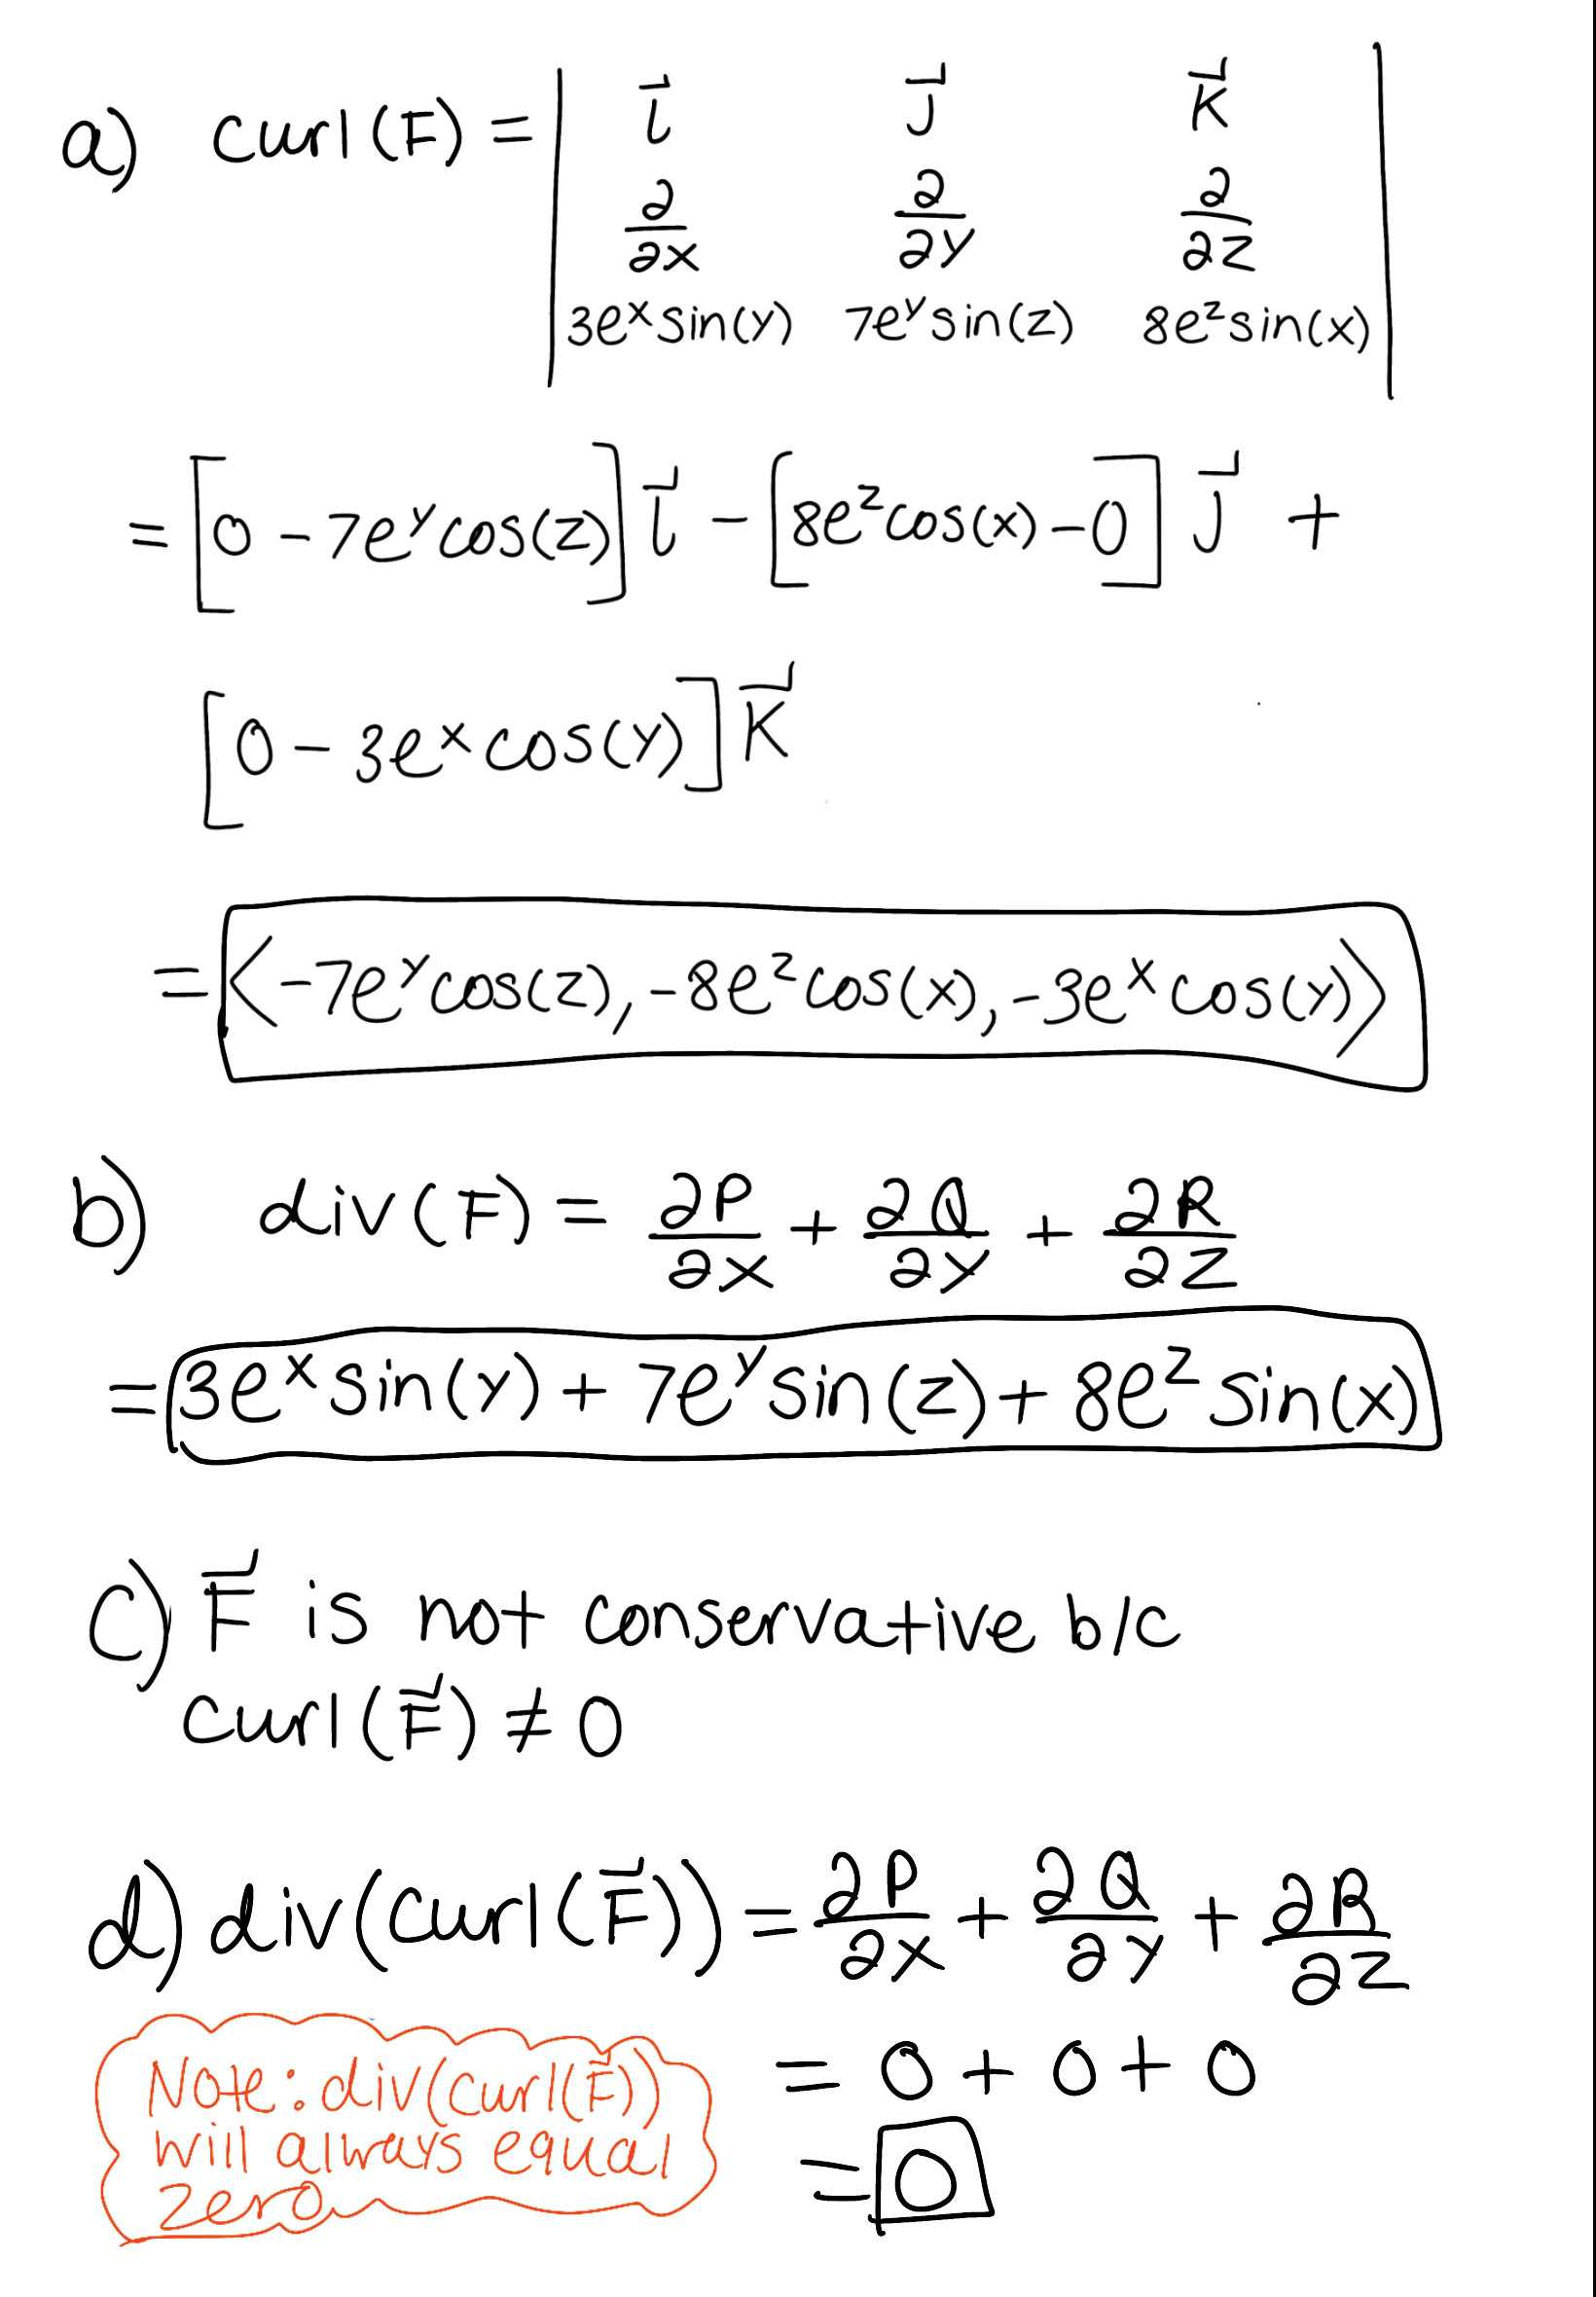 a) curl(F) = | i⃗ j⃗ k⃗ |
| ∂/∂x ∂/∂y ∂/∂z |
| 3eˣsin(y) 7eʸsin(z) 8eᶻsin(x) |
= [0 - 7eʸcos(z)] i⃗ - [8eᶻcos(x) - 0] j⃗ +
[0 - 3eˣcos(y)] k⃗
= ⟨-7eʸcos(z), -8eᶻcos(x), -3eˣcos(y)⟩
b) div(F) = ∂P/∂x + ∂Q/∂y + ∂R/∂z
= 3eˣsin(y) + 7eʸsin(z) + 8eᶻsin(x)
c) F⃗ is not conservative b/c
curl(F⃗) ≠ 0
d) div(curl(F⃗)) = ∂P/∂x + ∂Q/∂y + ∂R/∂z
= 0 + 0 + 0
= 0
Note: div(curl(F⃗))
will always equal
zero